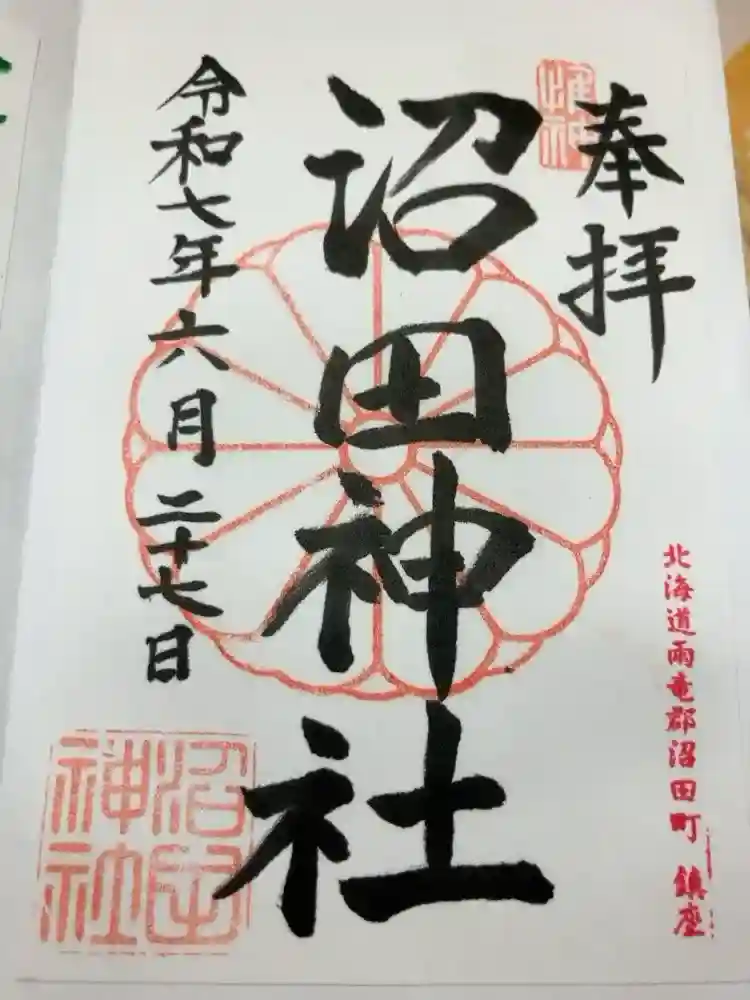 奉拝
北海道雨竜郡沼田町 鎮座
沼田神社
令和七年六月二十七日
沼田
神社